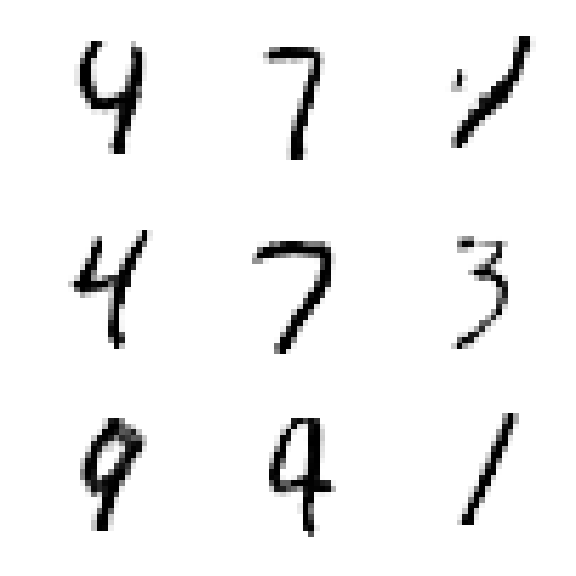 4 7
4 7 3
9 4 1